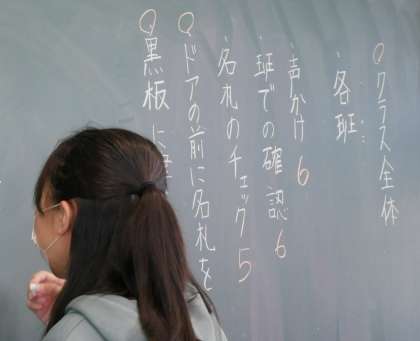 ○クラス全体
・各班
・声かけ 6
・班での確認 6
・名札のチェック 5
○ドアの前に名札を
○黒板に